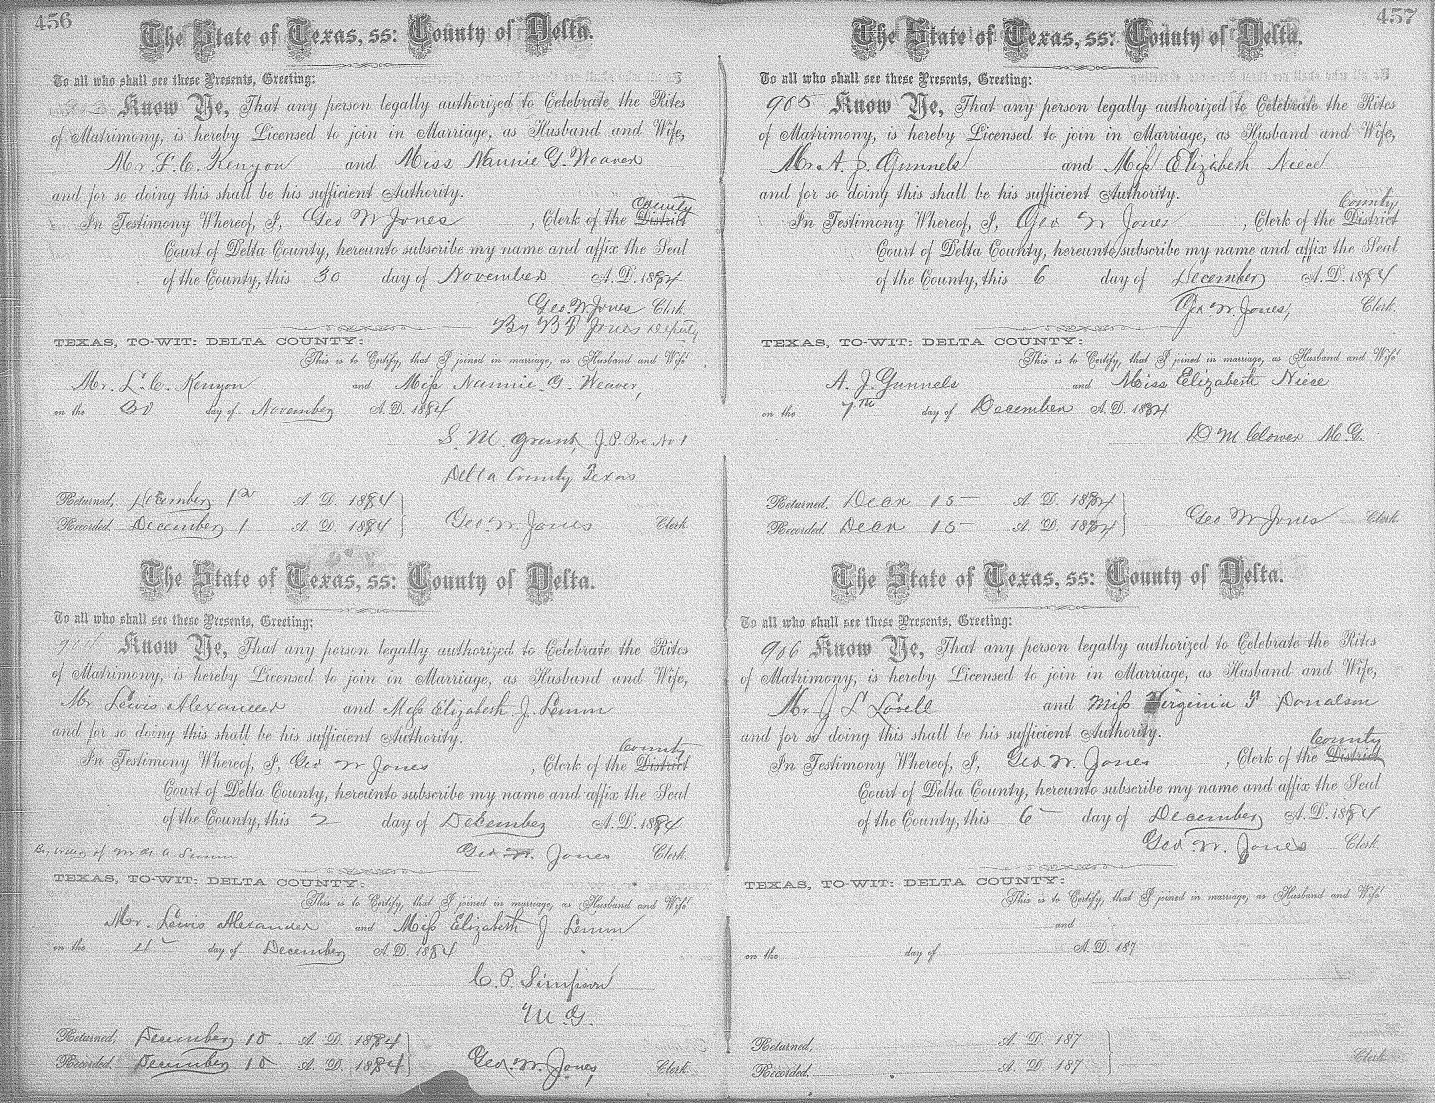 456
The State of Texas, ss: County of Delta.
To all who shall see these Presents, Greeting:
Know Ye, That any person legally authorized to Celebrate the Rites
of Matrimony, is hereby Licensed to join in Marriage, as Husband and Wife,
Mr. L. C. Kenyon and Miss Nannie G. Weaver
and for so doing this shall be his sufficient Authority.
County
In Testimony Whereof, I, Geo W Jones, Clerk of the District
Court of Delta County, hereunto subscribe my name and affix the Seal
of the County, this 30 day of November A. D. 1884
Geo. W Jones Clerk.
By B P Jones Deputy
TEXAS, TO-WIT: DELTA COUNTY:
This is to Certify, that I joined in marriage, as Husband and Wife
Mr. L. C. Kenyon and Miss Nannie G. Weaver,
on the 30 day of November A. D. 1884
S. M. Grant, J. P. Pre. No 1
Delta County Texas
Returned, December 1st A. D. 1884
Recorded. December 1 A. D. 1884 Geo. W. Jones Clerk
The State of Texas, ss: County of Delta.
To all who shall see these Presents, Greeting:
Know Ye, That any person legally authorized to Celebrate the Rites
of Matrimony, is hereby Licensed to join in Marriage, as Husband and Wife,
Mr Lewis Alexander and Miss Elizabeth J. Lemon
and for so doing this shall be his sufficient Authority.
County
In Testimony Whereof, I, Geo W Jones, Clerk of the District
Court of Delta County, hereunto subscribe my name and affix the Seal
of the County, this 2 day of December A. D. 1884
Geo W. Jones Clerk.
TEXAS, TO-WIT: DELTA COUNTY:
This is to Certify, that I joined in marriage, as Husband and Wife
Mr. Lewis Alexander and Miss Elizabeth J Lemon
on the 4 day of December A. D. 1884
C. P. Simpson
M. G.
Returned, December 10 A. D. 1884
Recorded. December 10 A. D. 1884 Geo. W. Jones, Clerk.
457
The State of Texas, ss: County of Delta.
To all who shall see these Presents, Greeting:
905 Know Ye, That any person legally authorized to Celebrate the Rites
of Matrimony, is hereby Licensed to join in Marriage, as Husband and Wife,
Mr. A. J. Gunnels and Miss Elizabeth Niece
and for so doing this shall be his sufficient Authority.
County
In Testimony Whereof, I, Geo W Jones, Clerk of the District
Court of Delta County, hereunto subscribe my name and affix the Seal
of the County, this 6 day of December A. D. 1884
Geo W Jones, Clerk.
TEXAS, TO-WIT: DELTA COUNTY:
This is to Certify, that I joined in marriage, as Husband and Wife
A. J. Gunnels and Miss Elizabeth Niece
on the 7th day of December A. D. 1884
D M Clower M. G.
Returned, 15 A. D. 1884
Recorded. 15 A. D. 1884 Geo W Jones Clerk.
The State of Texas, ss: County of Delta.
To all who shall see these Presents, Greeting:
906 Know Ye, That any person legally authorized to Celebrate the Rites
of Matrimony, is hereby Licensed to join in Marriage, as Husband and Wife,
Mr J L Lovell and Miss Virginia F Donalson
and for so doing this shall be his sufficient Authority.
County
In Testimony Whereof, I, Geo. W. Jones, Clerk of the District
Court of Delta County, hereunto subscribe my name and affix the Seal
of the County, this 6 day of December A. D. 1884
Geo. W. Jones Clerk.
TEXAS, TO-WIT: DELTA COUNTY:
This is to Certify, that I joined in marriage, as Husband and Wife
and
on the day of A. D. 187
Returned, A. D. 187
Recorded. A. D. 187 Clerk.